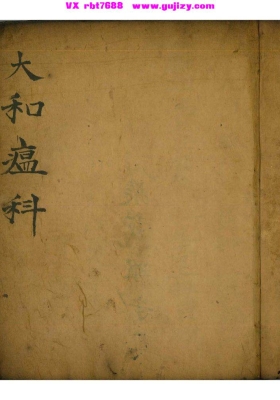 VX rbt7688 www.gujizy.com
大和瘟科